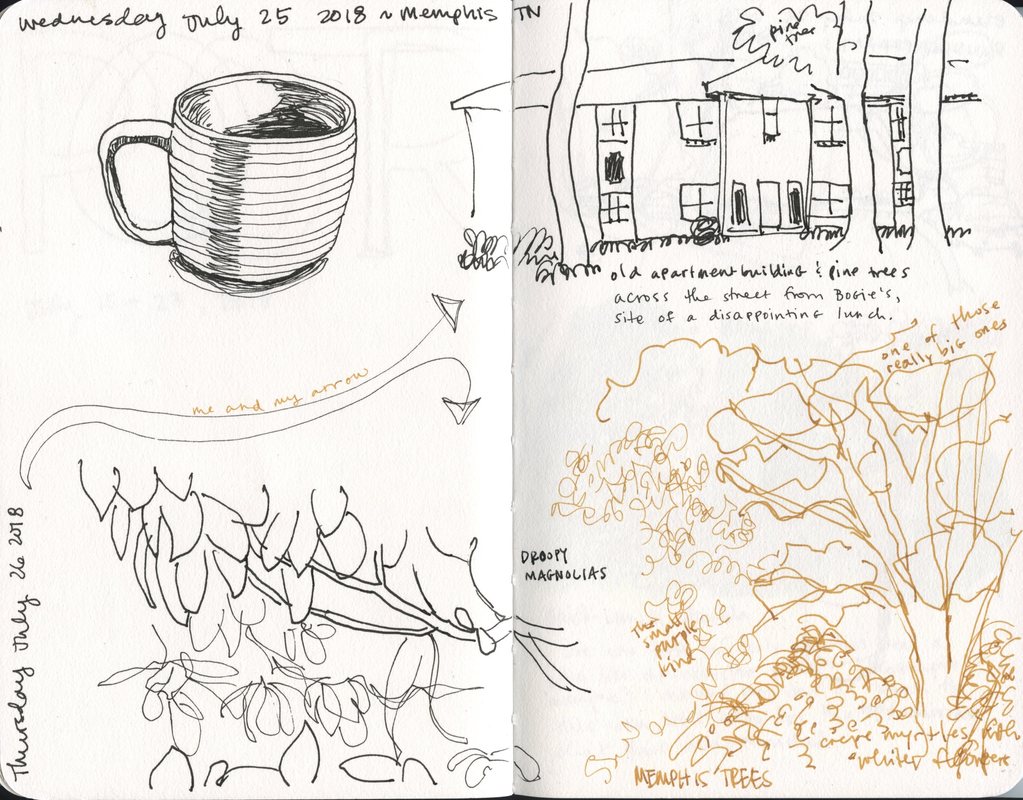 wednesday July 25 2018 ~ Memphis TN
pine
tree
old apartment building & pine trees
across the street from Bogie's,
site of a disappointing lunch.
one of those
really big ones
me and my arrow
Thursday July 26 2018
DROOPY
MAGNOLIAS
The
small
purple
kind
crepe myrtles with
white flowers
MEMPHIS TREES